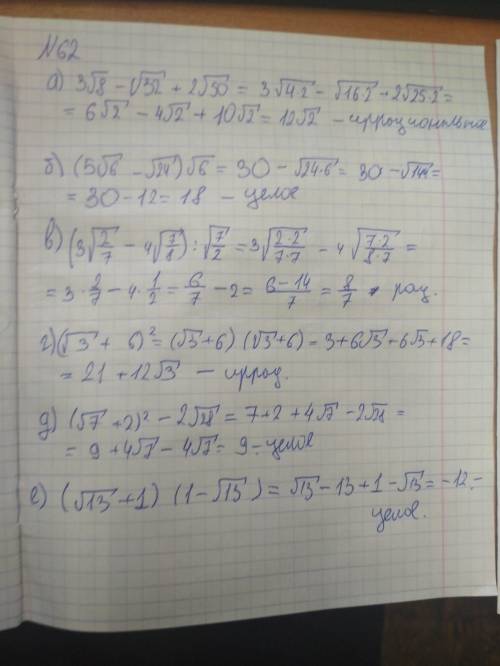 №62
а) 3√8 − √32 + 2√50 = 3√4·2 − √16·2 + 2√25·2 =
= 6√2 − 4√2 + 10√2 = 12√2 − иррациональное
б) (5√6 − √24)√6 = 30 − √24·6 = 30 − √144 =
= 30 − 12 = 18 − целое
в) (3√2/7 − 4√7/8) : √7/2 = 3√2·2/7·7 − 4√7·2/8·7 =
= 3·2/7 − 4·1/2 = 6/7 − 2 = 6−14/7 = 8/7 − рац.
г) (√3 + 6)² = (√3+6)(√3+6) = 3+6√3+6√3+18 =
= 21 + 12√3 − иррац.
д) (√7 + 2)² − 2√28 = 7+2+4√7 − 2√28 =
= 9 + 4√7 − 4√7 = 9 − целое
е) (√13 + 1) (1 − √13) = √13 − 13 + 1 − √13 = −12 −
целое.